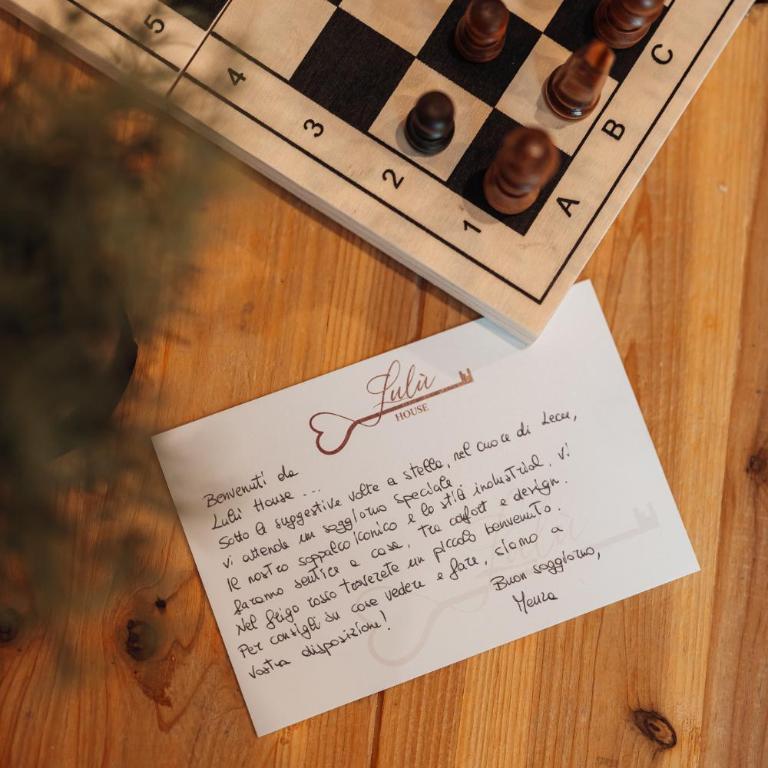 5
4
3
2
1
A
B
C
Lulù
HOUSE
Benvenuti da
Lulù House ...
Sotto le suggestive volte a stella, nel cuore di Lecce,
vi attende un soggiorno speciale.
Il nostro soppalco iconico e lo stile industrial, vi
faranno sentire a casa, tra comfort e design.
Nel frigo rosso troverete un piccolo benvenuto.
Per consigli su cose vedere e fare, siamo a
vostra disposizione!
Buon soggiorno,